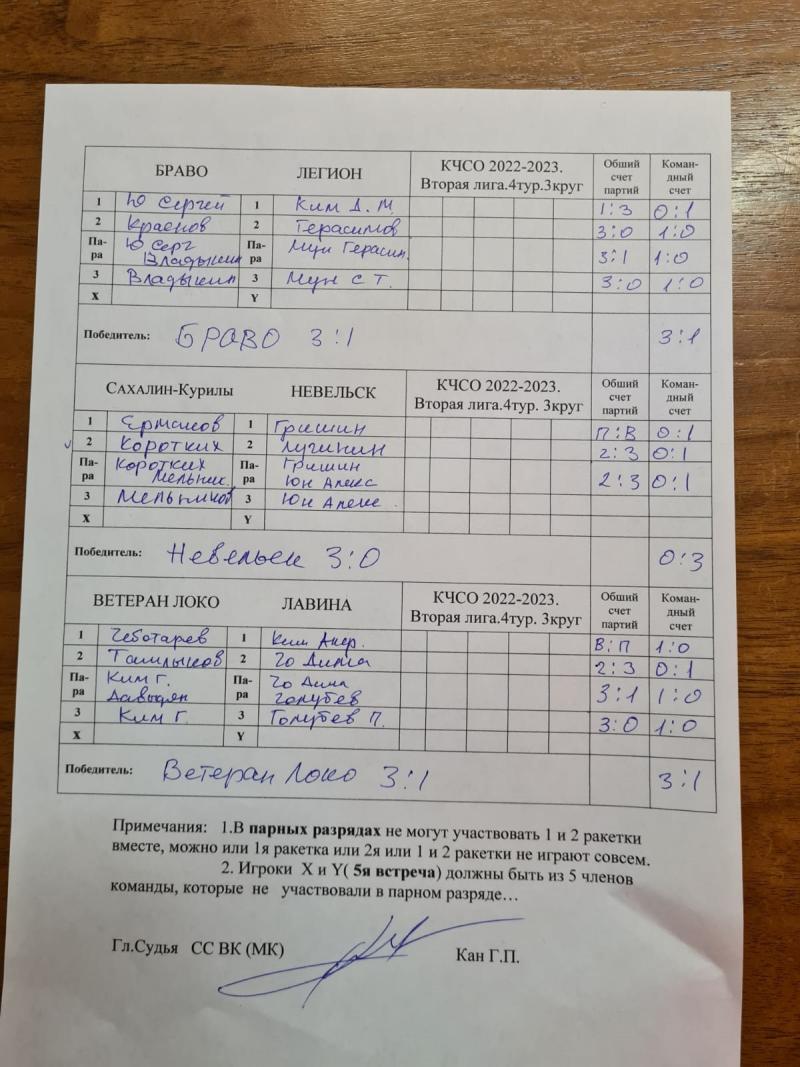 БРАВО ЛЕГИОН КЧСО 2022-2023. Вторая лига.4тур.3круг Обший счет партий Коман-дный счет
1 Ю Сергей 1 Ким Д. М. 1:3 0:1
2 Краснов 2 Герасимов 3:0 1:0
Па-ра Ю Серг Владыкин Па-ра Мун Герасим. 3:1 1:0
3 Владыкин 3 Мун С Т. 3:0 1:0
X Y
Победитель: БРАВО 3:1 3:1
САХАЛИН-КУРИЛЫ НЕВЕЛЬСК КЧСО 2022-2023. Вторая лига.4тур. 3круг Обший счет партий Коман-дный счет
1 Ермаков 1 Гришин П:В 0:1
2 Коротких 2 Лучинин 2:3 0:1
Па-ра Коротких Мельник. Па-ра Гришин Юн Алекс 2:3 0:1
3 Мельников 3 Юн Алекс.
X Y
Победитель: Невельск 3:0 0:3
ВЕТЕРАН ЛОКО ЛАВИНА КЧСО 2022-2023. Вторая лига.4тур. 3круг Обший счет партий Коман-дный счет
1 Чеботарев 1 Ким В:П 1:0
2 2 Чо Дима 2:3 0:1
Па-ра Ким Г. Давыдян Па-ра Чо Дима Голубев 3:1 1:0
3 Ким Г. 3 Голубев П. 3:0 1:0
X Y
Победитель: Ветеран Локо 3:1 3:1
Примечания: 1.В парных разрядах не могут участвовать 1 и 2 ракетки
вместе, можно или 1я ракетка или 2я или 1 и 2 ракетки не играют совсем.
2. Игроки X и Y( 5я встреча) должны быть из 5 членов
команды, которые не участвовали в парном разряде…
Гл.Судья СС ВК (МК) Кан Г.П.